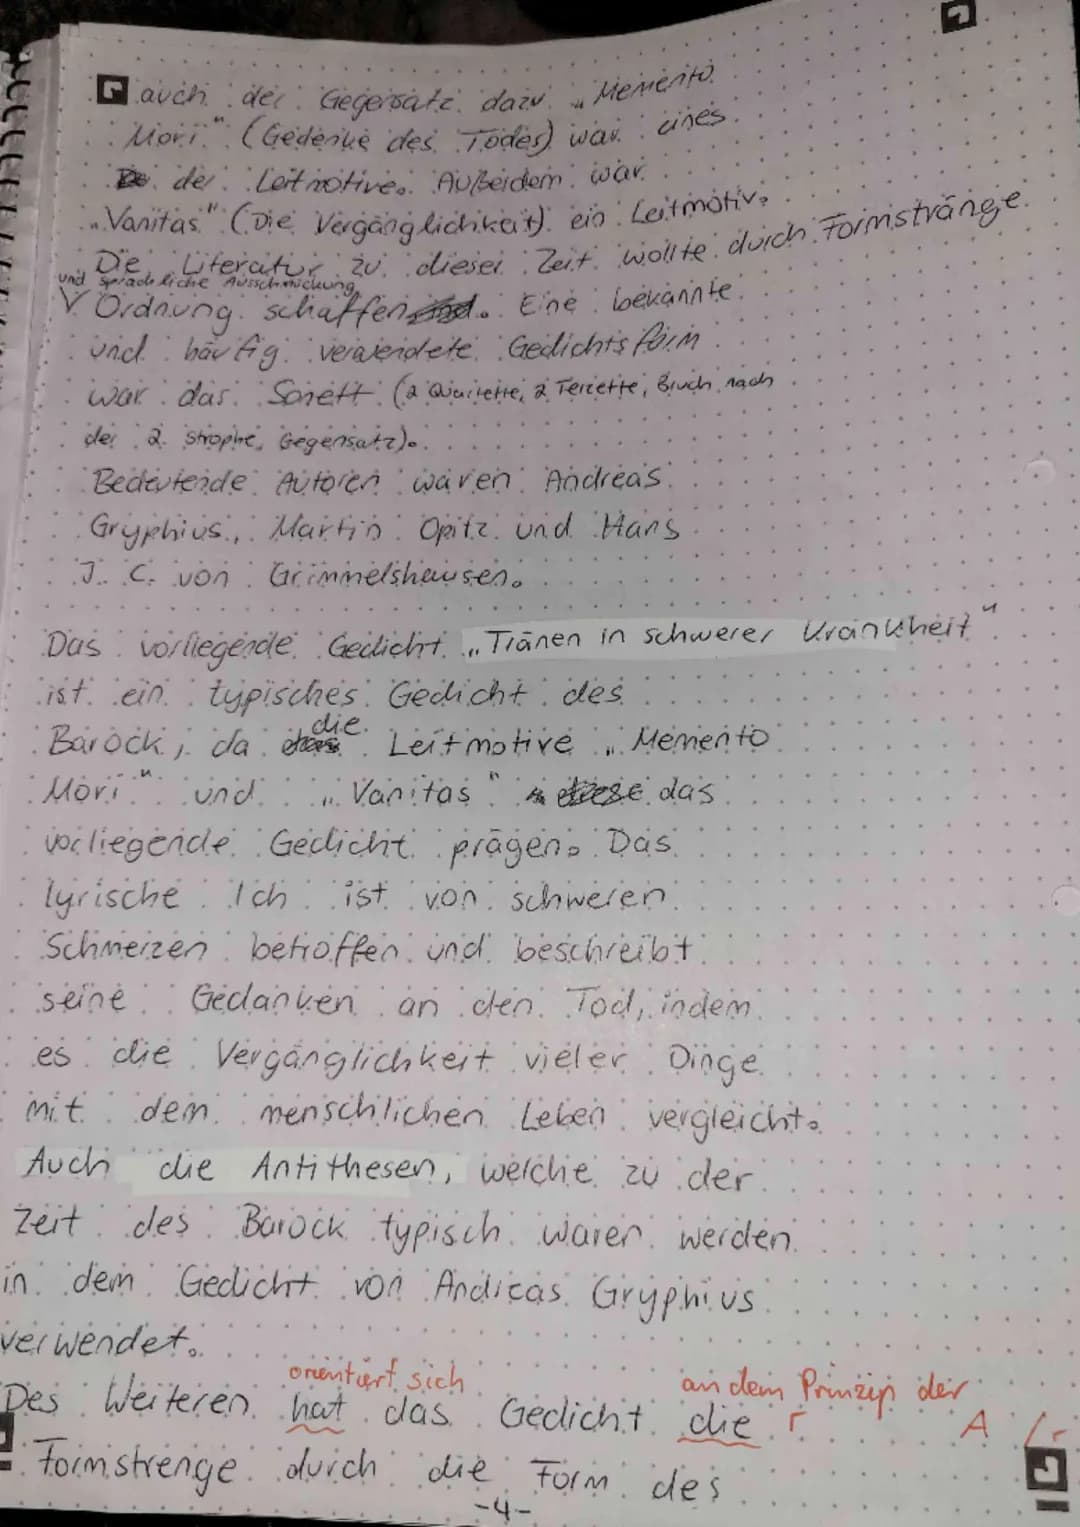 auch der Gegensatz dazu „Memento
Mori" (Gedenke des Todes) war eines
der Leitmotive. Außerdem war
„Vanitas" (Die Vergänglichkeit) ein Leitmotiv.
Die Literatur zu dieser Zeit wollte durch Formstränge
und sprachliche Ausschmückung
Ordnung schaffen. Eine bekannte
und häufig verwendete Gedichtsform
war das Sonett (2 Quartette, 2 Terzette, Bruch nach
der 2. Strophe, Gegensatz).
Bedeutende Autoren waren Andreas
Gryphius, Martin Opitz und Hans
J. C. von Grimmelshausen.
Das vorliegende Gedicht „Tränen in schwerer Krankheit"
ist ein typisches Gedicht des
Barock, da die Leitmotive „Memento
Mori" und „Vanitas" das
vorliegende Gedicht prägen. Das
lyrische Ich ist von schweren
Schmerzen betroffen und beschreibt
seine Gedanken an den Tod, indem
es die Vergänglichkeit vieler Dinge
mit dem menschlichen Leben vergleicht.
Auch die Antithesen, welche zu der
Zeit des Barock typisch waren werden
in dem Gedicht von Andreas Gryphius
verwendet.
orientiert sich an dem Prinzip der
Des Weiteren hat das Gedicht die A
Formstrenge durch die Form des
-4-